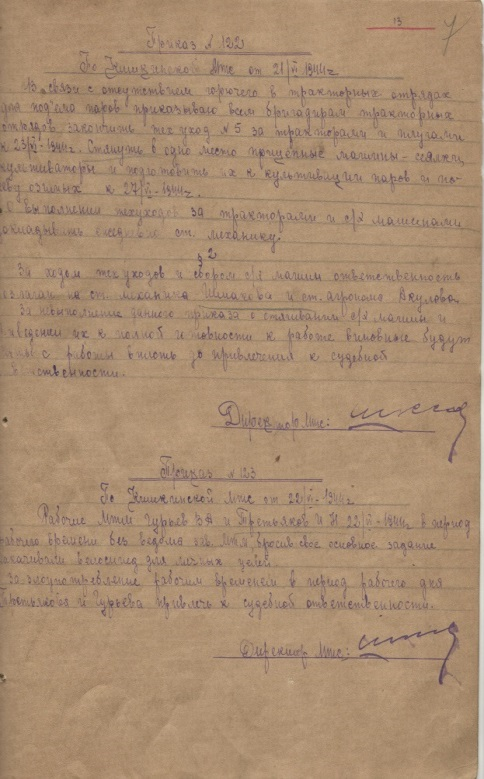 13
7
Приказ № 122
По Кишкинской Мтс от 21/VI-1944г
В связи с отсутствием горючего в тракторных отрядах
для под'ема паров приказываю всем бригадирам тракторных
отрядов закончить техуход №5 за тракторами и плугами
к 23/VI-1944г. Стянуть в одно место прицепные машины - сеялки,
культиваторы и подготовить их к культивации паров и по-
севу озимых к 27/VI-1944г.
О выполнении техуходов за тракторами и с/х машинами
докладывать ежедневно ст. механику.
§ 2
За ходом техуходов и сбором с/х машин ответственность
на ст. механика и ст. агронома Акулова
За невыполнение данного приказа о стягивании с/х машин и
приведении их к полной готовности к работе виновные будут
с работы вплоть до привлечения к судебной
ответственности.
Директор Мтс:
Приказ № 123
По Кишкинской Мтс от 22/VI-1944г
Рабочие Мтм Гурьев ВА и Третьяков И Н 22/VI-1944г в период
рабочего времени без ведома зав. Мтм, бросив свое основное задание
велосипед для личных целей
За злоупотребление рабочим временем в период рабочего дня
Третьякова и Гурьева привлечь к судебной ответственности.
Директор Мтс: